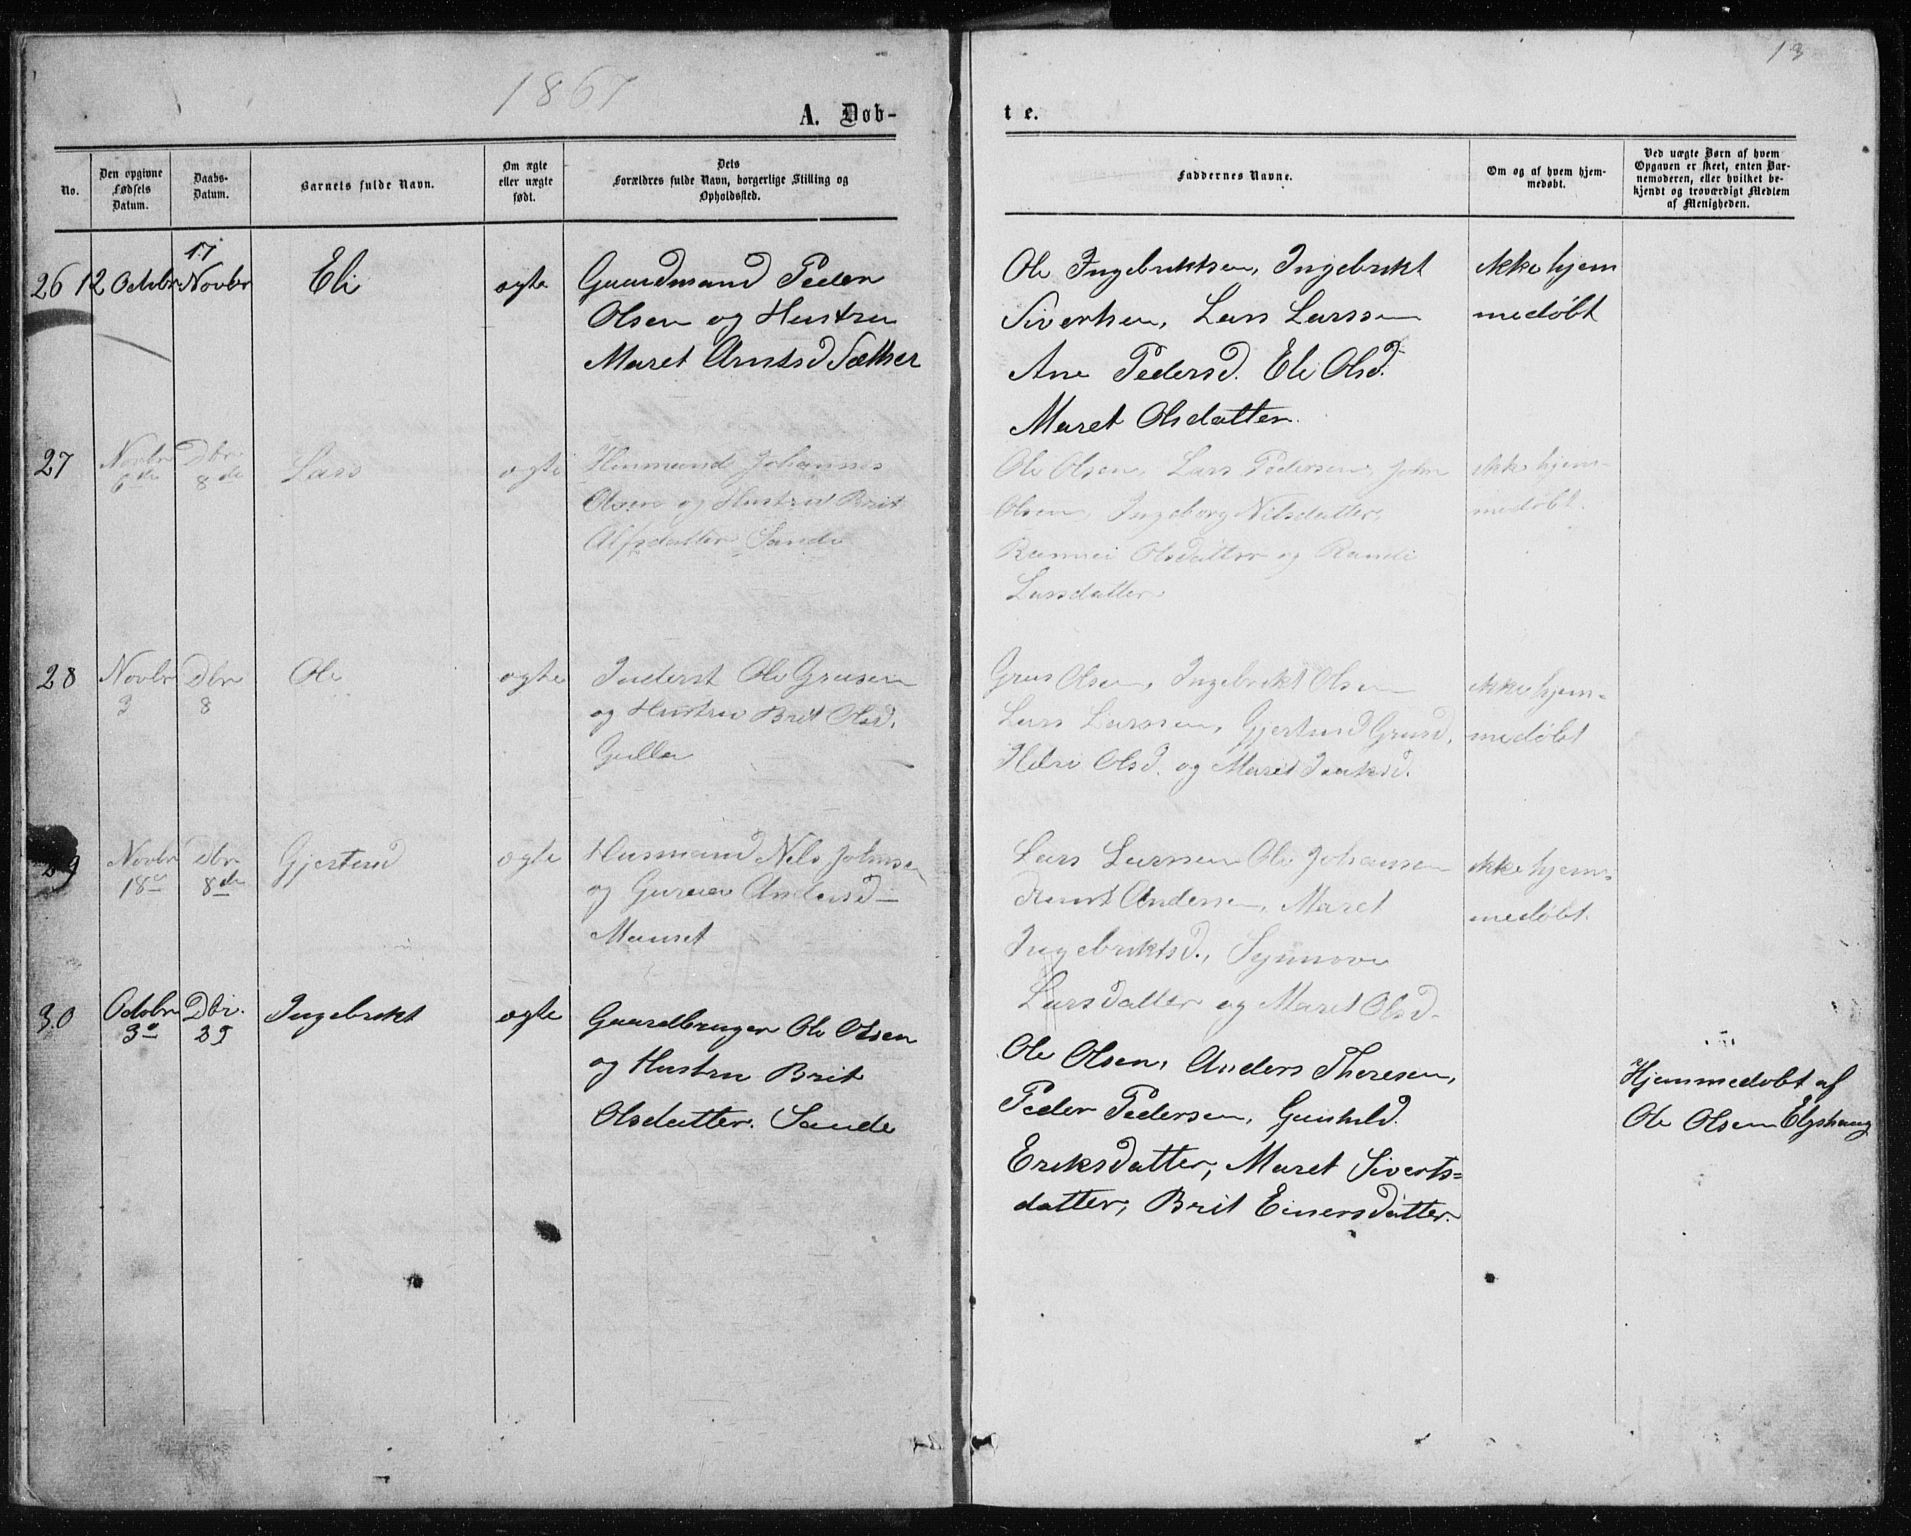 1867
13
A. Døb-
te.
No.
Den opgivne
Fødsels
Datum.
Daabs-
Datum.
Barnets fulde Navn.
Om ægte
eller uægte
født.
Dets
Forældres fulde Navn, borgerlige Stilling og
Opholdssted.
Faddernes Navne.
Om og af hvem hjem-
medøbt.
Ved uægte Børn af hvem
Opgaven er skeet, enten Bar-
nemoderen, eller hvilket be-
kjendt og troværdigt Medlem
af Menigheden.
26 12 Octobr 17 Novbr Eli ægte
Gaardmand Peder
Olsen og Hustru
Maret Arntsd Sæther
Ole Ingebriktsen, Ingebrikt
Sivertsen, Lars Larssen
Ane Pedersd. Eli Olsd.
Maret Olsdatter.
ikke hjem
medøbt
27 Novbr 6de Dbr 8de Lars ægte
Husmand Johannes
Olsen og Hustru Brit
Alfsdatter Sande
Ole Olsen, Lars Pedersen, John
Olsen, Ingeborg Nilsdatter,
Rannei Olsdatter og Randi
Larsdatter
ikke hjem-
medøbt.
28 Novbr 3 Dbr 8 Ole ægte
Inderst Ole Grusen
og Hustru Brit Olsd.
Gulla
Grus Olsen, Ingebrikt Olsen
Lars Larssen, Gjertrud Grusd.
Olsd. og Maret
ikke hjem-
medøbt
29 Novbr 18de Dbr 8de Gjertrud ægte
Husmand Nils Johnsen
og Andersd
Lars Larssen Ole Johansen
Andersen, Maret
Ingebriktsd., Synnove
Larsdatter og Maret Olsd.
ikke hjem-
medøbt.
30 Octobr 3 Dbr. Ingebrikt ægte
Gaardbruger Ole Olsen
og Hustru Brit
Olsdatter. Sande
Ole Olsen, Anders Thoresen,
Peder Pedersen, Gunhild
Eriksdatter, Maret Siverts=
datter, Brit Einersdatter.
Hjemmedøbt af
Ole Olsen Elgshaug